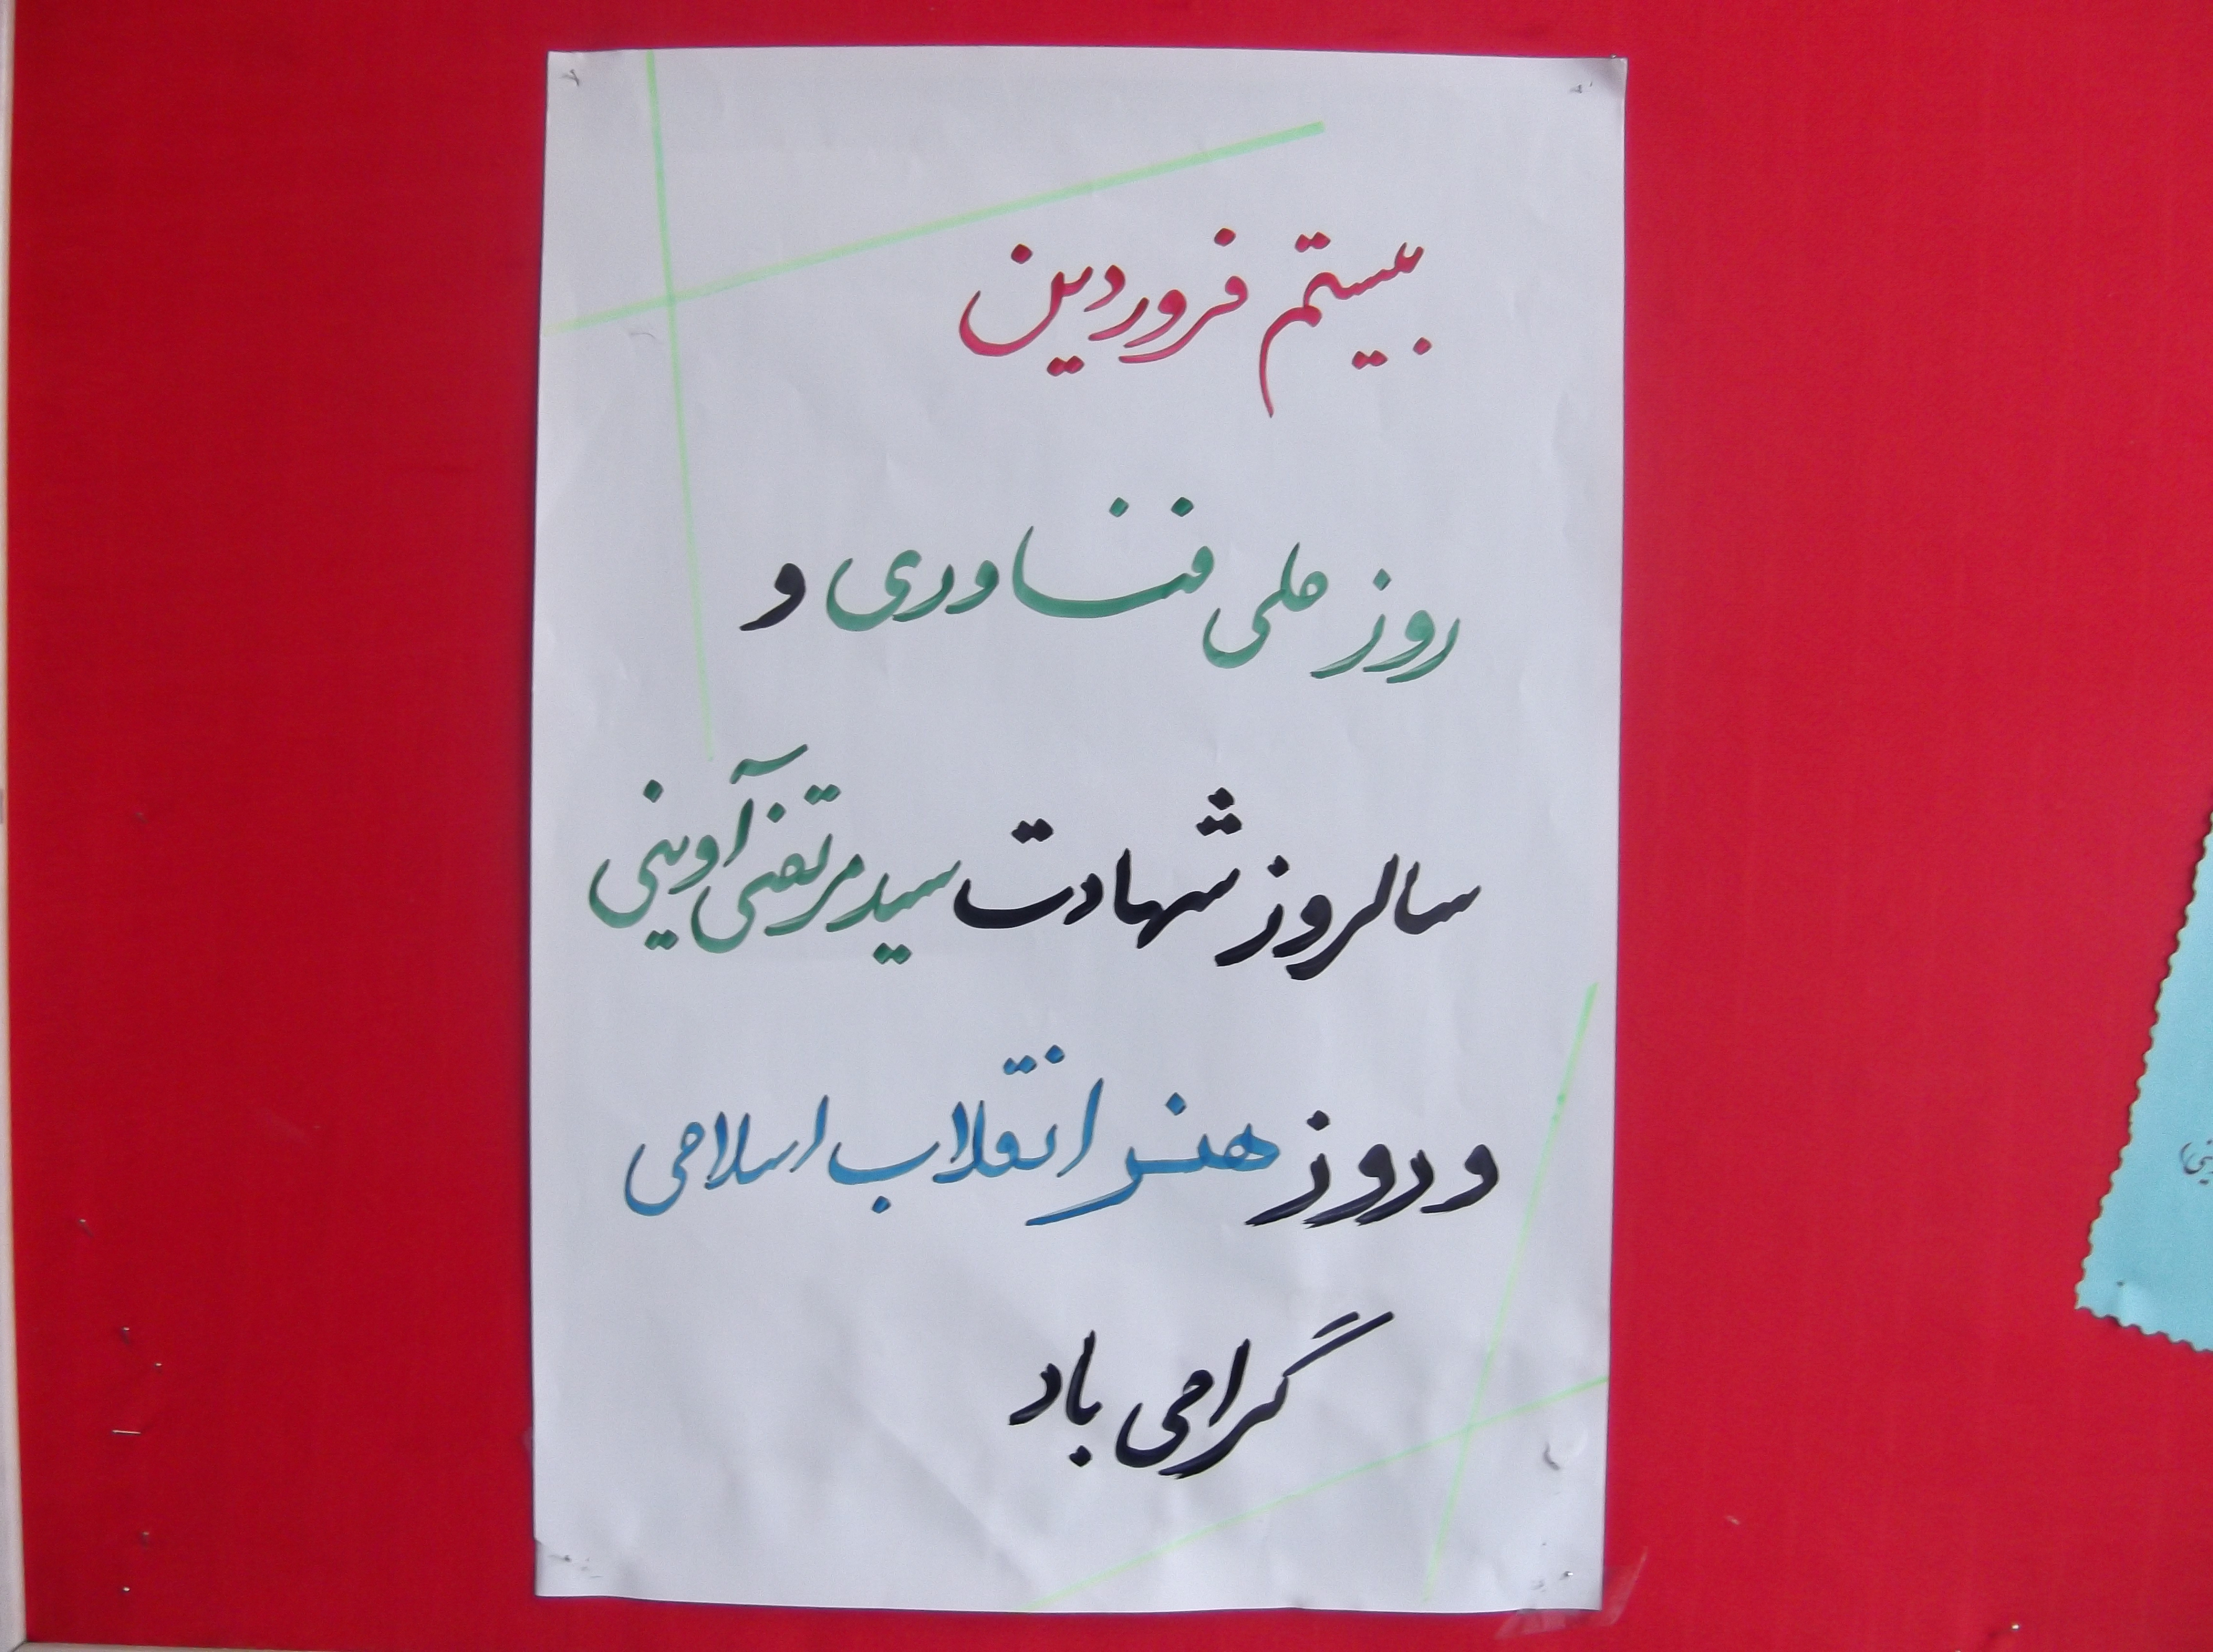 بیستم فروردین
روز ملی فناوری و
سالروز شهادت سید مرتضی آوینی
و روز هنر انقلاب اسلامی
گرامی باد